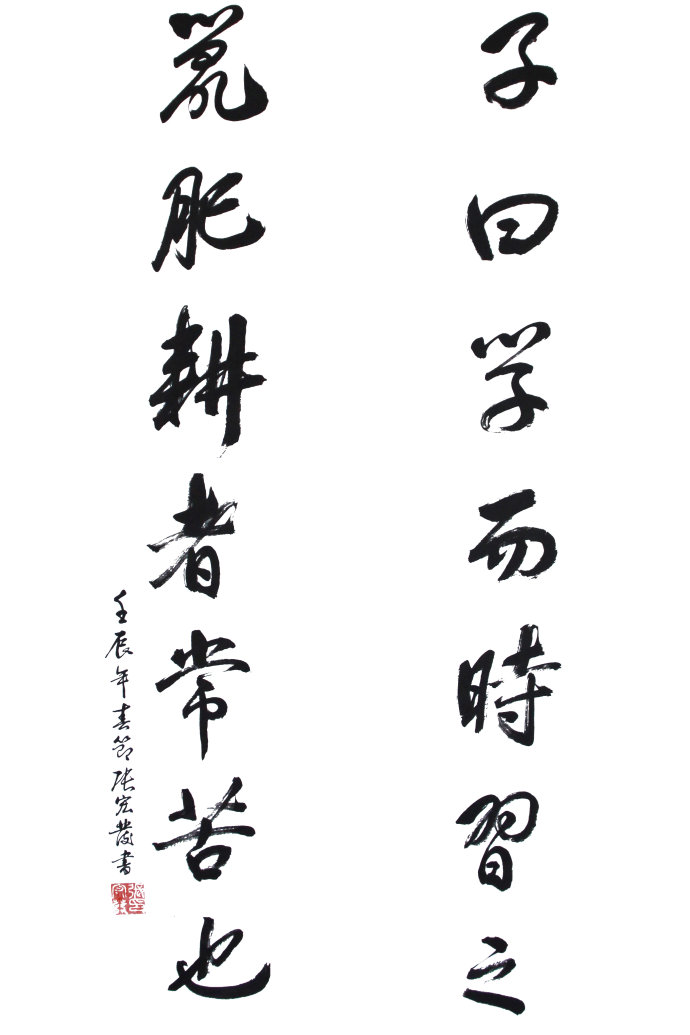 子曰学而時習之
鼠肥耕者常苦也
壬辰年春節張宏發書